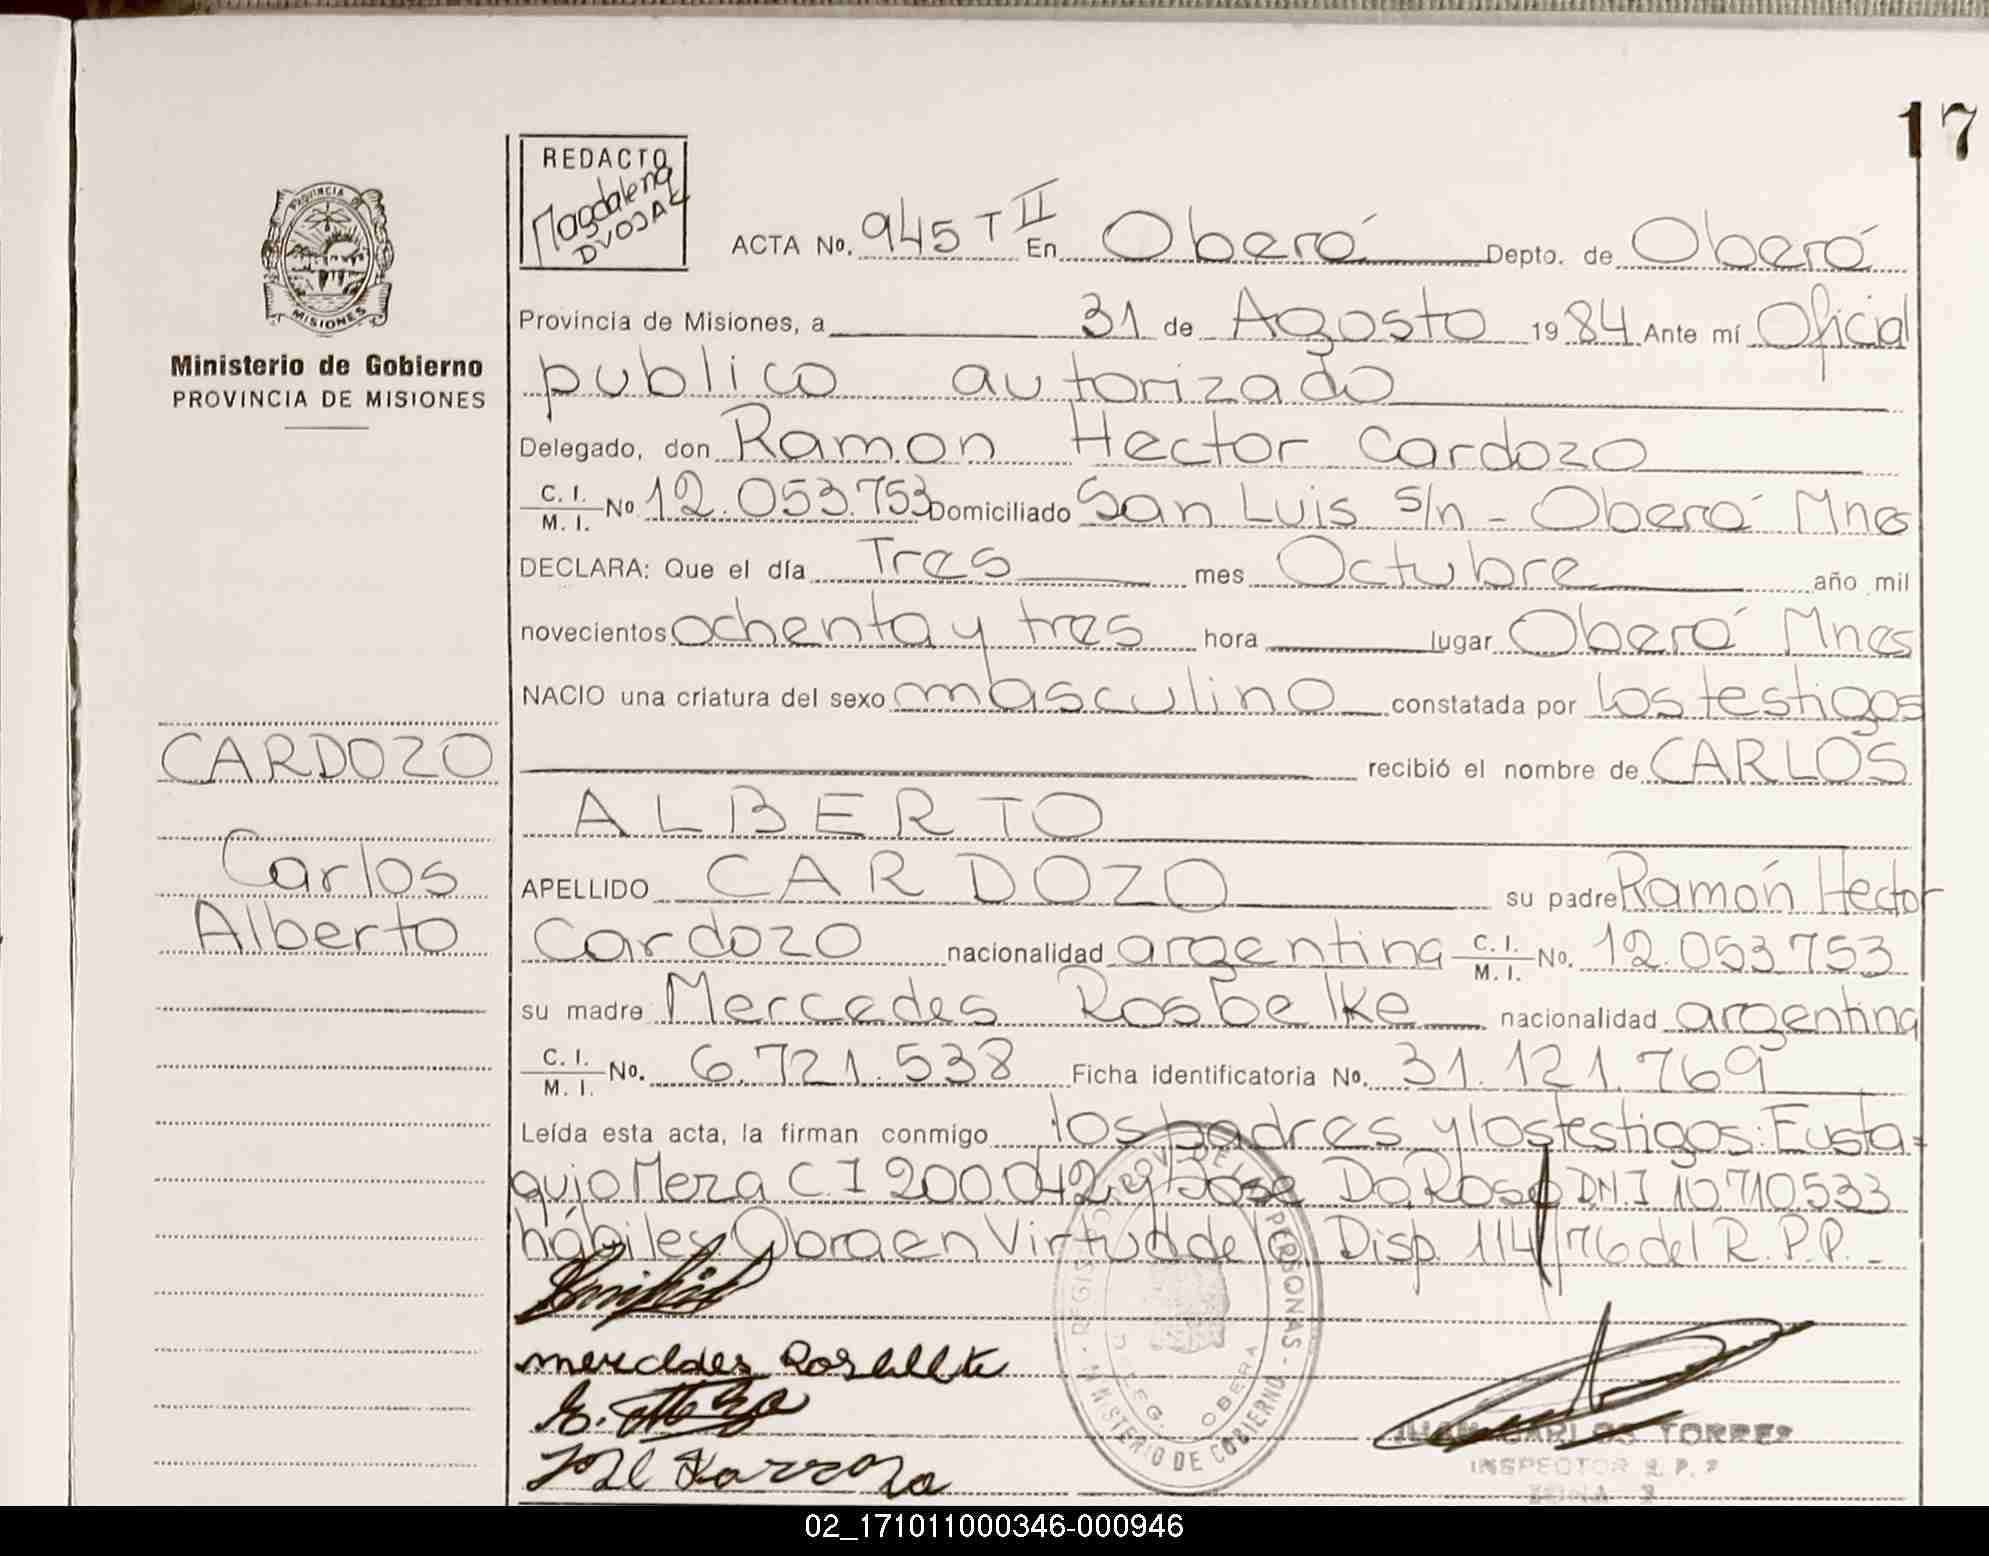 17
REDACTO
Magdalena
DVOJAK
PROVINCIA DE
MISIONES
Ministerio de Gobierno
PROVINCIA DE MISIONES
ACTA No. 945 T II En Oberá Depto. de Oberá
Provincia de Misiones, a 31 de Agosto 1984 Ante mí Oficial
publico autorizado
Delegado, don Ramon Hector Cardozo
C. I. / M. I. No 12.053.753 Domiciliado San Luis s/n - Oberá Mnes
DECLARA: Que el día Tres mes Octubre año mil
novecientos ochenta y tres hora lugar Oberá Mnes
NACIO una criatura del sexo masculino constatada por los testigos
CARDOZO
recibió el nombre de CARLOS
ALBERTO
Carlos
APELLIDO CARDOZO su padre Ramón Hector
Alberto
Cardozo nacionalidad argentina C. I. / M. I. No. 12.053.753
su madre Mercedes Rosbelke nacionalidad argentina
C. I. / M. I. No. 6.721.538 Ficha identificatoria No. 31.121.769
Leída esta acta, la firman conmigo los padres y los testigos: Eusta=
quio Meza C.I 200.042 y Jose Da Rosa DN.I 10.710.533
hábiles. Obra en Virtud de la Disp. 114/76 del R.P.P.-
REGISTRO PROV. DE LAS PERSONAS - MINISTERIO DE GOBIERNO -
DELEG. OBERA
mercedes
JUAN CARLOS TORRES
INSPECTOR R. P. P
ZONA 3
02_171011000346-000946